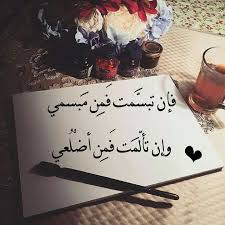 فإن تبسَّمت فَمِن مَبسمي
وإن تألّمت فَمِن أضْلُعي